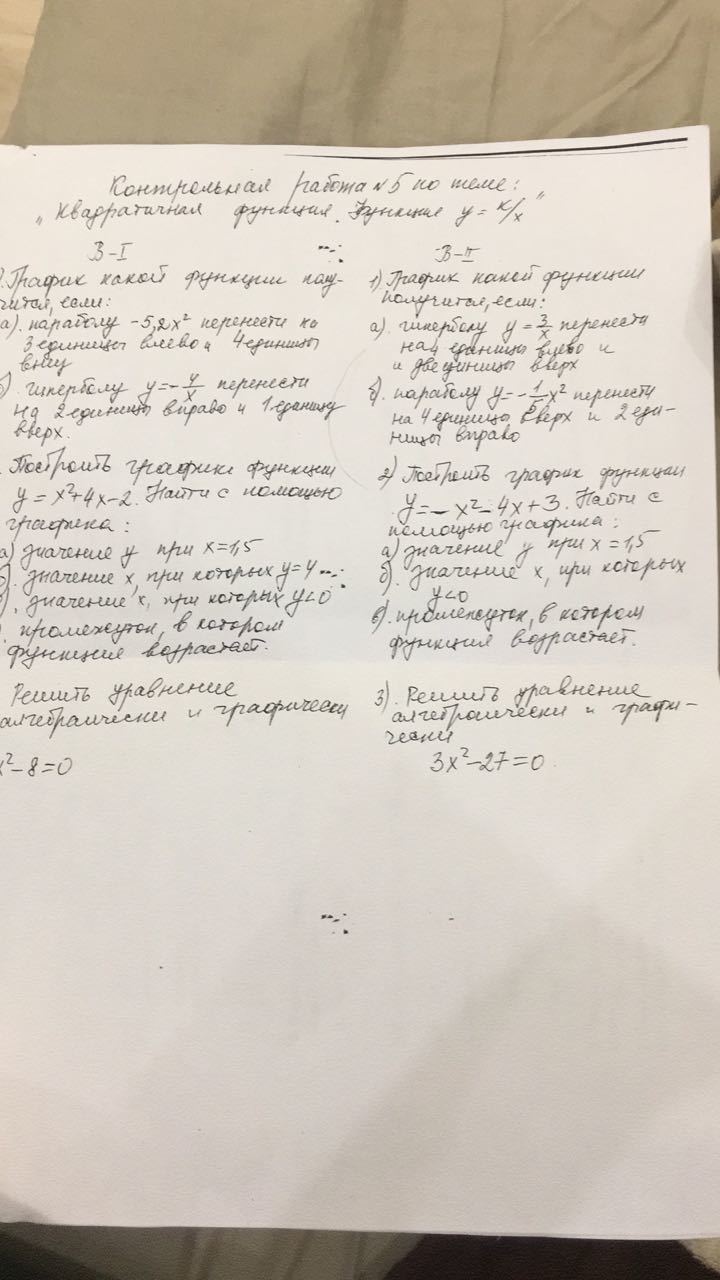 Контрольная работа №5 по теме:
„Квадратичная функция. Функция y = k/x"
В-I
). График какой функции полу-
чится, если:
а). параболу -5,2x² перенести на
3 единицы влево и 4 единицы
вниз
б). гиперболу y = - 4/x перенести
на 2 единицы вправо и 1 единицу
вверх.
. Построить график функции
y = x² + 4x - 2. Найти с помощью
графика:
а) значение y при x = 1,5
). значение x, при которых y = 4
), значение x, при которых y < 0
) промежуток, в котором
функция возрастает.
Решить уравнение
алгебраически и графически
x² - 8 = 0
В-II
1) График какой функции
получится, если:
а). гиперболу y = 3/x перенести
на 4 единицы влево и
и две единицы вверх
б). параболу y = - x² перенести
на 4 единицы вверх и 2 еди-
ницы вправо
2) Построить график функции
y = - x² - 4x + 3. Найти с
помощью графика:
а) значение y при x = 1,5
б). значение x, при которых
y < 0
в). промежуток, в котором
функция возрастает.
3). Решить уравнение
алгебраически и графи-
чески
3x² - 27 = 0.